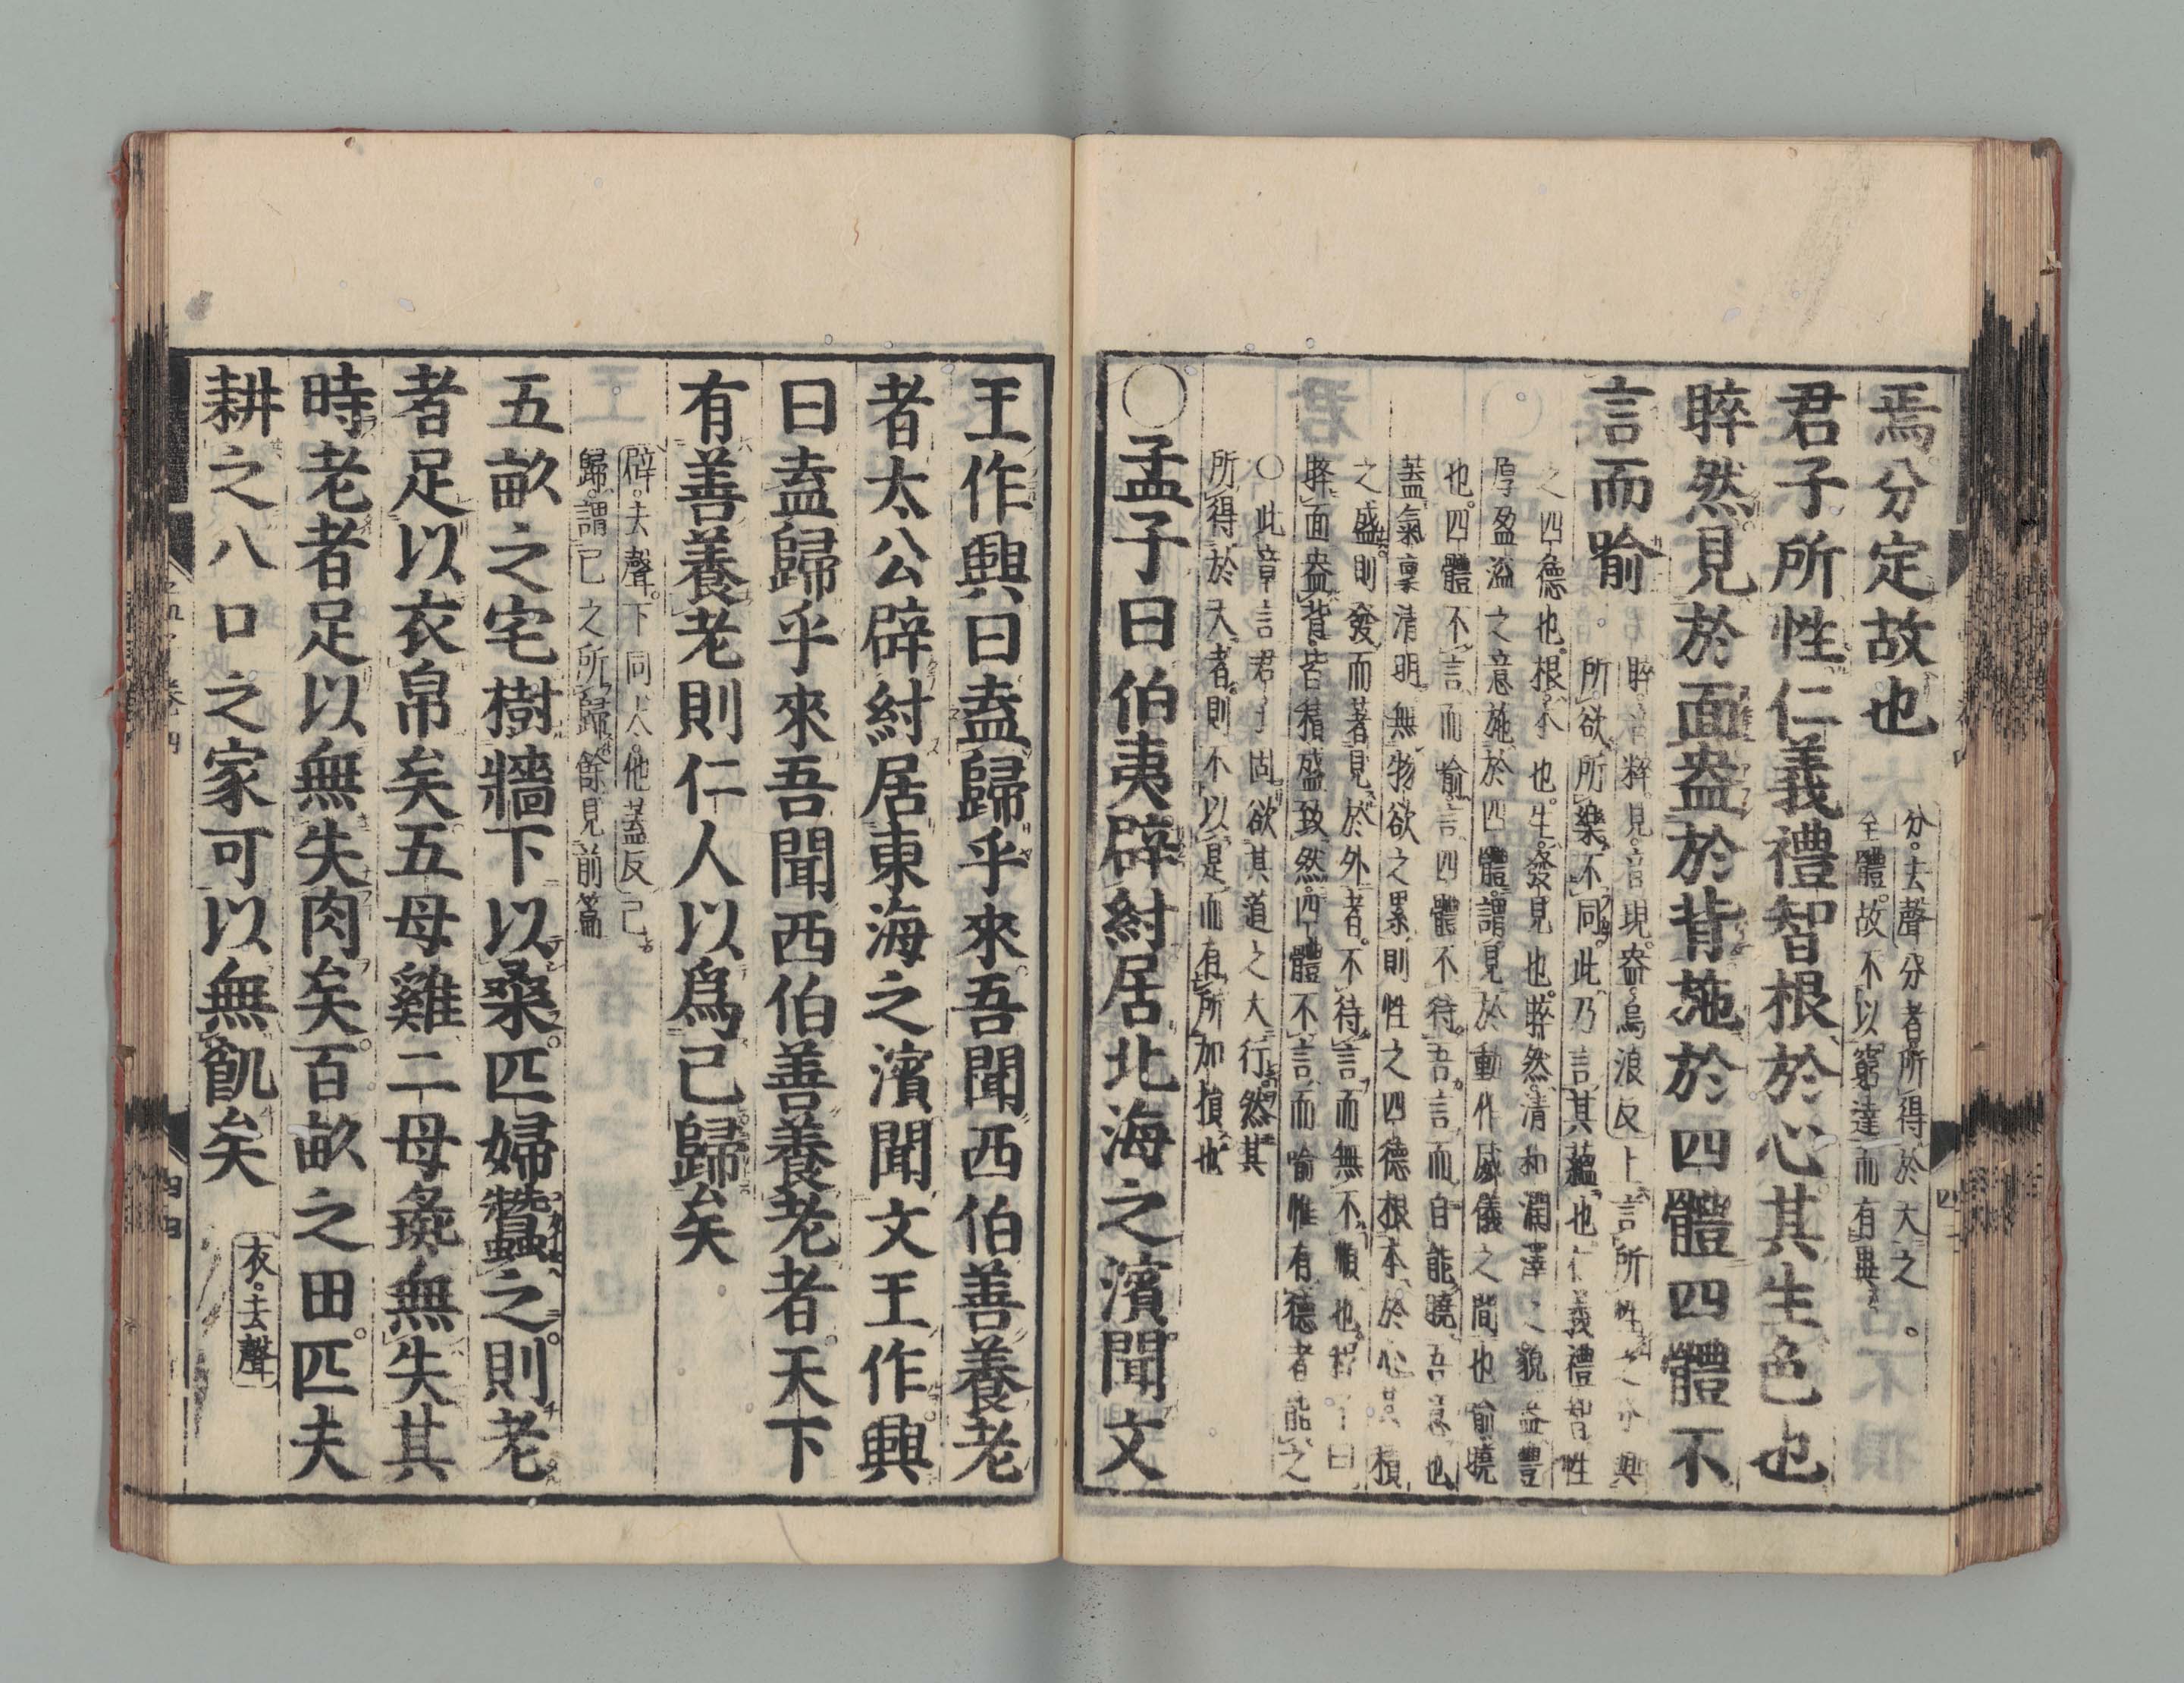 焉分定故也
分去聲分者所得於天之
全體故不以窮達而有異
君子所性仁義禮智根於心其生色也
睟然見於面盎於背施於四體四體不
言而喻
睟音粹見音現盎烏浪反上言所性之分與
所欲所樂不同此乃言其蘊也仁義禮智性
之四德也根本也生發見也睟然清和潤澤之貌盎豐
厚盈溢之意施於四體謂見於動作威儀之間也喻曉
也四體不言而喻言四體不待吾言而自能曉吾意也
蓋氣稟清明無物欲之累則性之四德根本於心其積
之盛則發而著見於外者不待言而無不順也程子曰
睟面盎背皆積盛致然四體不言而喻惟有德者能之
○此章言君子固欲其道之大行然其
所得於天者則不以是而有所加損也
○孟子曰伯夷辟紂居北海之濱聞文
王作興曰盍歸乎來吾聞西伯善養老
者太公辟紂居東海之濱聞文王作興
曰盍歸乎來吾聞西伯善養老者天下
有善養老則仁人以爲己歸矣
辟去聲下同大他蓋反己
歸謂己之所歸餘見前篇
五畝之宅樹牆下以桑匹婦蠶之則老
者足以衣帛矣五母雞二母彘無失其
時老者足以無失肉矣百畝之田匹夫
耕之八口之家可以無飢矣
衣去聲